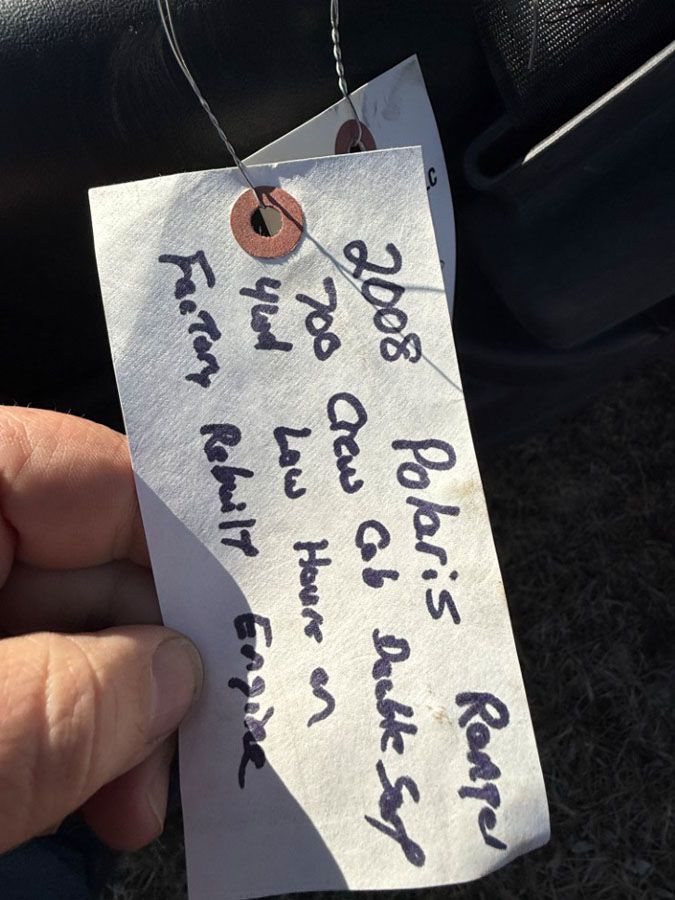 2008 Polaris Ranger
700 Crew Cab Double
4wd Low Hours on
Factory Rebuilt Engine